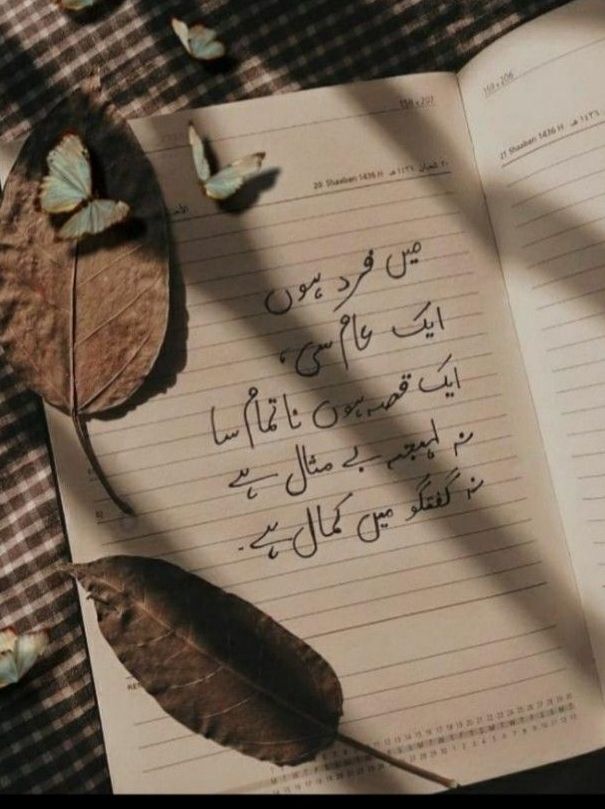 159 x 207
20 Shaaban 1436 H
٢٠ شعبان ١٤٣٦ هـ
میں فرد ہوں
ایک عام سی ،
ایک قصہ ہوں ناتمام سا
نہ لہجہ بے مثال ہے
نہ گفتگو میں کمال ہے۔
159 x 206
21 Shaaban 1436 H
١٤٣٦ هـ